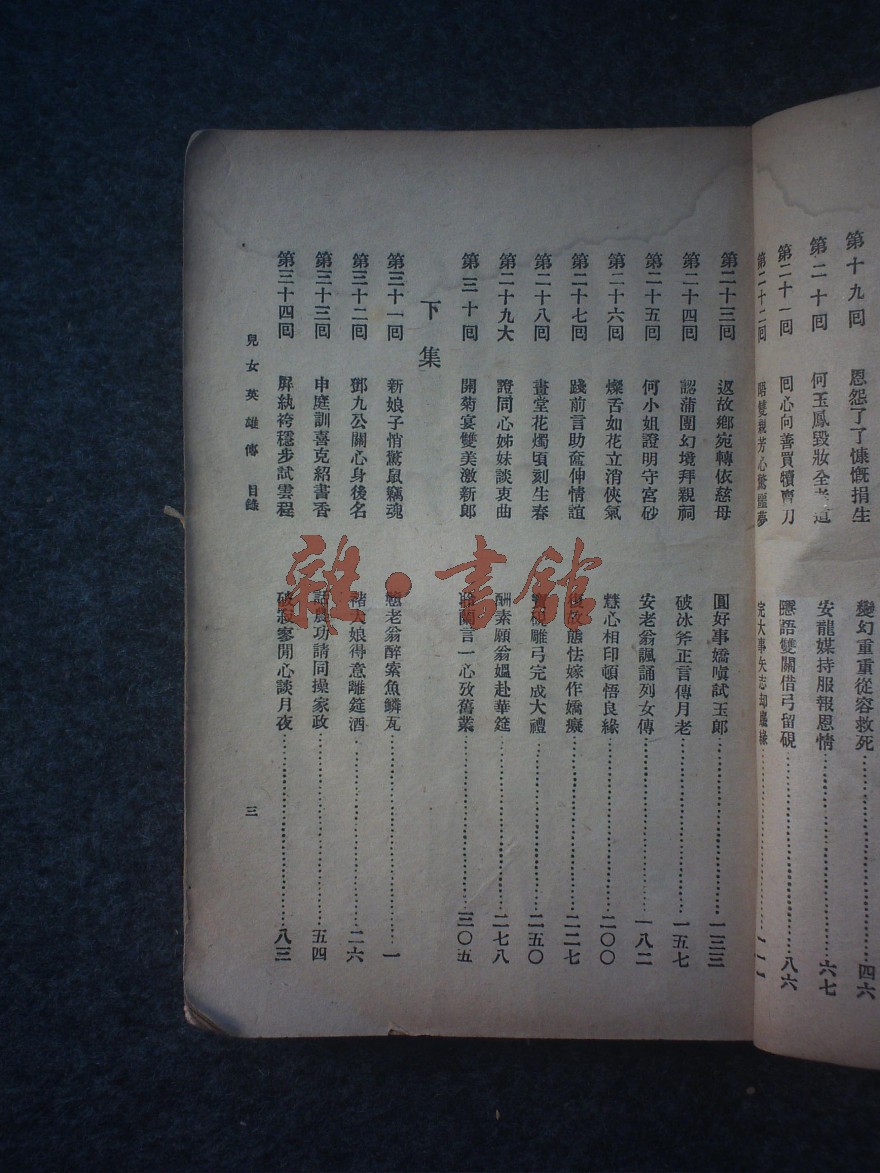 第十九回 恩怨了了慷慨捐生 變幻重重從容救死 四六
第二十回 何玉鳳毀妝全孝道 安龍媒持服報恩情 六七
第二十一回 回心向善買犢賣刀 隱語雙關借弓留硯 八六
第二十二回 晤雙親芳心驚噩夢 完大事矢志却塵緣 一一一
第二十三回 返故鄉宛轉依慈母 圓好事嬌嗔試玉郎 一三三
第二十四回 認蒲團幻境拜親祠 破冰斧正言傳月老 一五七
第二十五回 何小姐證明守宮砂 安老翁諷誦列女傳 一八二
第二十六回 燦舌如花立消俠氣 慧心相印頓悟良緣 二〇〇
第二十七回 踐前言助奩伸情誼 復故態怯嫁作嬌癡 二二七
第二十八回 畫堂花燭頃刻生春 寶硯雕弓完成大禮 二五〇
第二十九大 證同心姊妹談衷曲 酬素願翁媼赴華筵 二七八
第三十回 開菊宴雙美激新郎 聆蘭言一心攷舊業 三〇五
下集
第三十一回 新娘子悄驚鼠竊魂 憨老翁醉索魚鱗瓦 一
第三十二回 鄧九公關心身後名 褚大娘得意離筵酒 二六
第三十三回 申庭訓喜克紹書香 話農功請同操家政 五四
第三十四回 屏紈袴穩步試雲程 破寂寥閒心談月夜 八三
兒女英雄傳 目錄
三
雜·書館